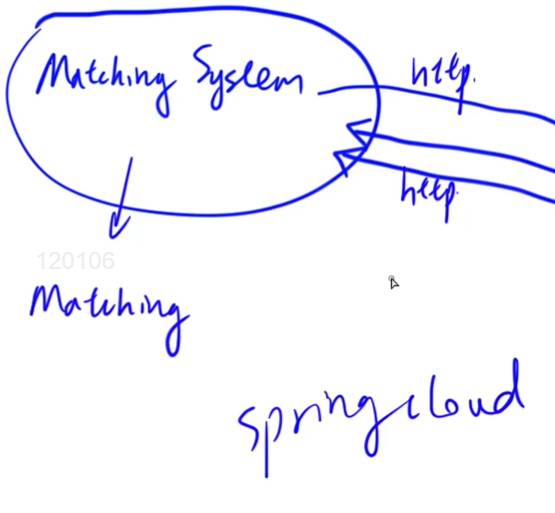 Matching System
http.
http.
120106
Matching
springcloud